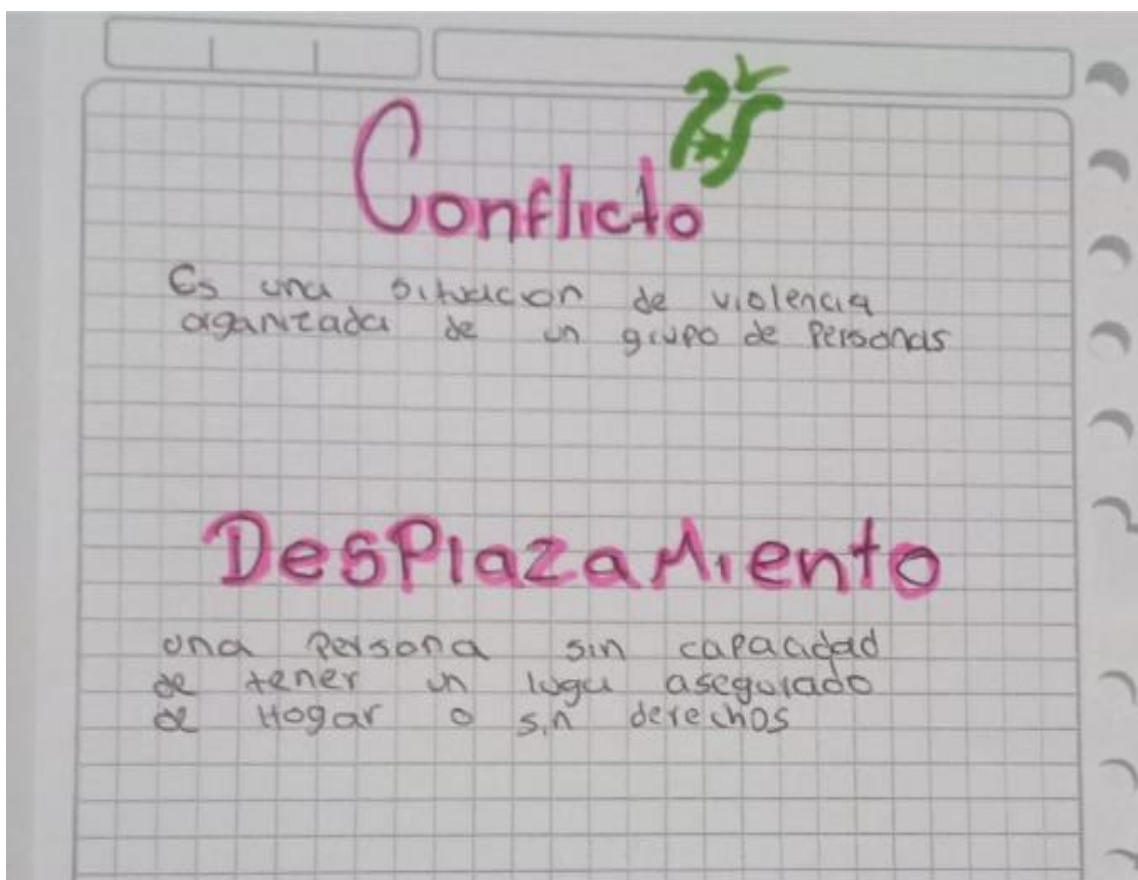 Conflicto
Es una situacion de violencia
oganizada de un grupo de Personas
DesPlazaMiento
una Persona sin capacidad
de tener un lugar asegurado
de Hogar o sin derechos